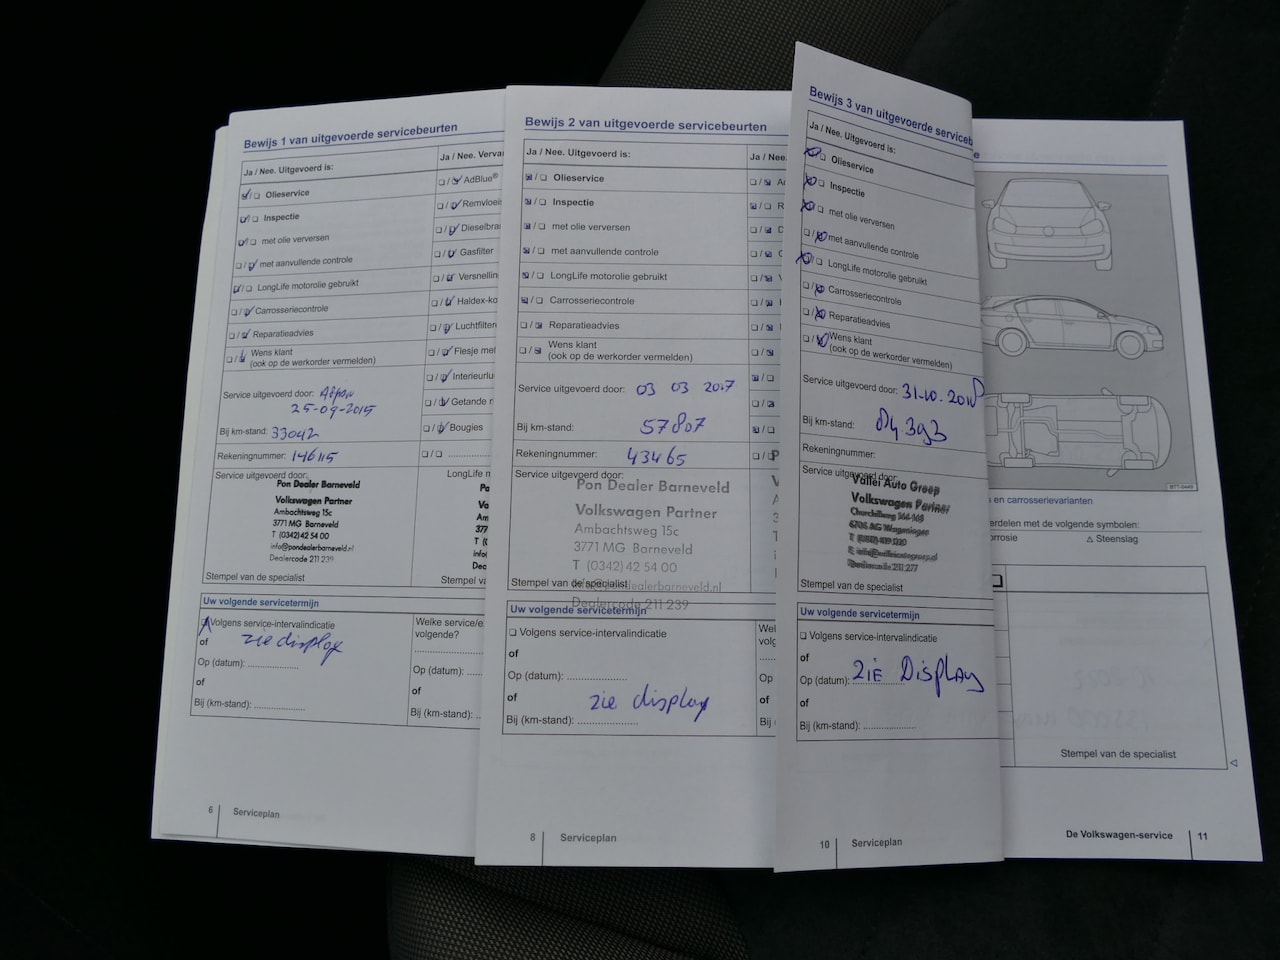 Bewijs 1 van uitgevoerde servicebeurten
Ja / Nee. Uitgevoerd is:
Ja / Nee. Verva
Olieservice
Inspectie
met olie verversen
met aanvullende controle
LongLife motorolie gebruikt
Carrosseriecontrole
Reparatieadvies
Wens klant
(ook op de werkorder vermelden)
AdBlue®
Remvloei
Dieselbra
Gasfilter
Versnelling
Haldex-ko
Luchtfilter
Flesje met
Interieurlu
Getande r
Bougies
Service uitgevoerd door:
25-09-2015
Bij km-stand: 33042
Rekeningnummer: 146115
Service uitgevoerd door:
LongLife m
Pon Dealer Barneveld
Volkswagen Partner
Ambachtsweg 15c
3771 MG Barneveld
T (0342) 42 54 00
info@pondealerbarneveld.nl
Dealercode 211 239
Stempel van de specialist
Stempel va
Uw volgende servicetermijn
Volgens service-intervalindicatie
zie display
of
Op (datum):
of
Bij (km-stand):
Welke service/e
volgende?
Op (datum):
of
Bij (km-stand):
6 Serviceplan
Bewijs 2 van uitgevoerde servicebeurten
Ja / Nee. Uitgevoerd is:
Ja / Nee.
Olieservice
Inspectie
met olie verversen
met aanvullende controle
LongLife motorolie gebruikt
Carrosseriecontrole
Reparatieadvies
Wens klant
(ook op de werkorder vermelden)
Service uitgevoerd door: 03 03 2017
Bij km-stand: 57807
Rekeningnummer: 43465
Service uitgevoerd door:
Pon Dealer Barneveld
Volkswagen Partner
Ambachtsweg 15c
3771 MG Barneveld
T (0342) 42 54 00
info@pondealerbarneveld.nl
Stempel van de specialist
Dealercode 211 239
Uw volgende servicetermijn
Volgens service-intervalindicatie
of
Op (datum):
of
zie display
Bij (km-stand):
Wel
volg
Op
of
Bij (
8 Serviceplan
Bewijs 3 van uitgevoerde serviceb
Ja / Nee. Uitgevoerd is:
Olieservice
Inspectie
met olie verversen
met aanvullende controle
LongLife motorolie gebruikt
Carrosseriecontrole
Reparatieadvies
Wens klant
(ook op de werkorder vermelden)
Service uitgevoerd door: 31-10-2018
Bij km-stand: 84393
Rekeningnummer:
Service uitgevoerd door:
Vallei Auto Groep
Volkswagen Partner
Churchillweg 144-148
6706 AG Wageningen
Dealercode 211 277
Stempel van de specialist
Uw volgende servicetermijn
Volgens service-intervalindicatie
of
Op (datum): ZIE Display
of
Bij (km-stand):
10 Serviceplan
s en carrosserievarianten
erdelen met de volgende symbolen:
orrosie
△ Steenslag
Stempel van de specialist
De Volkswagen-service 11